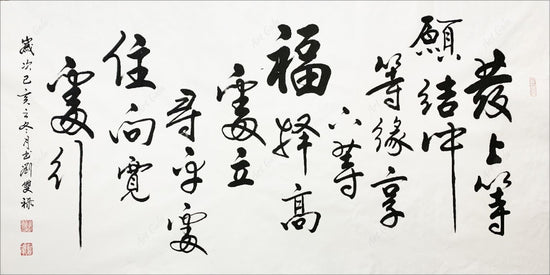 發上等
願結中
等緣享
下等
福擇高
處立
尋平處
住向寬
處行
歲次己亥之冬月书劉雙禄